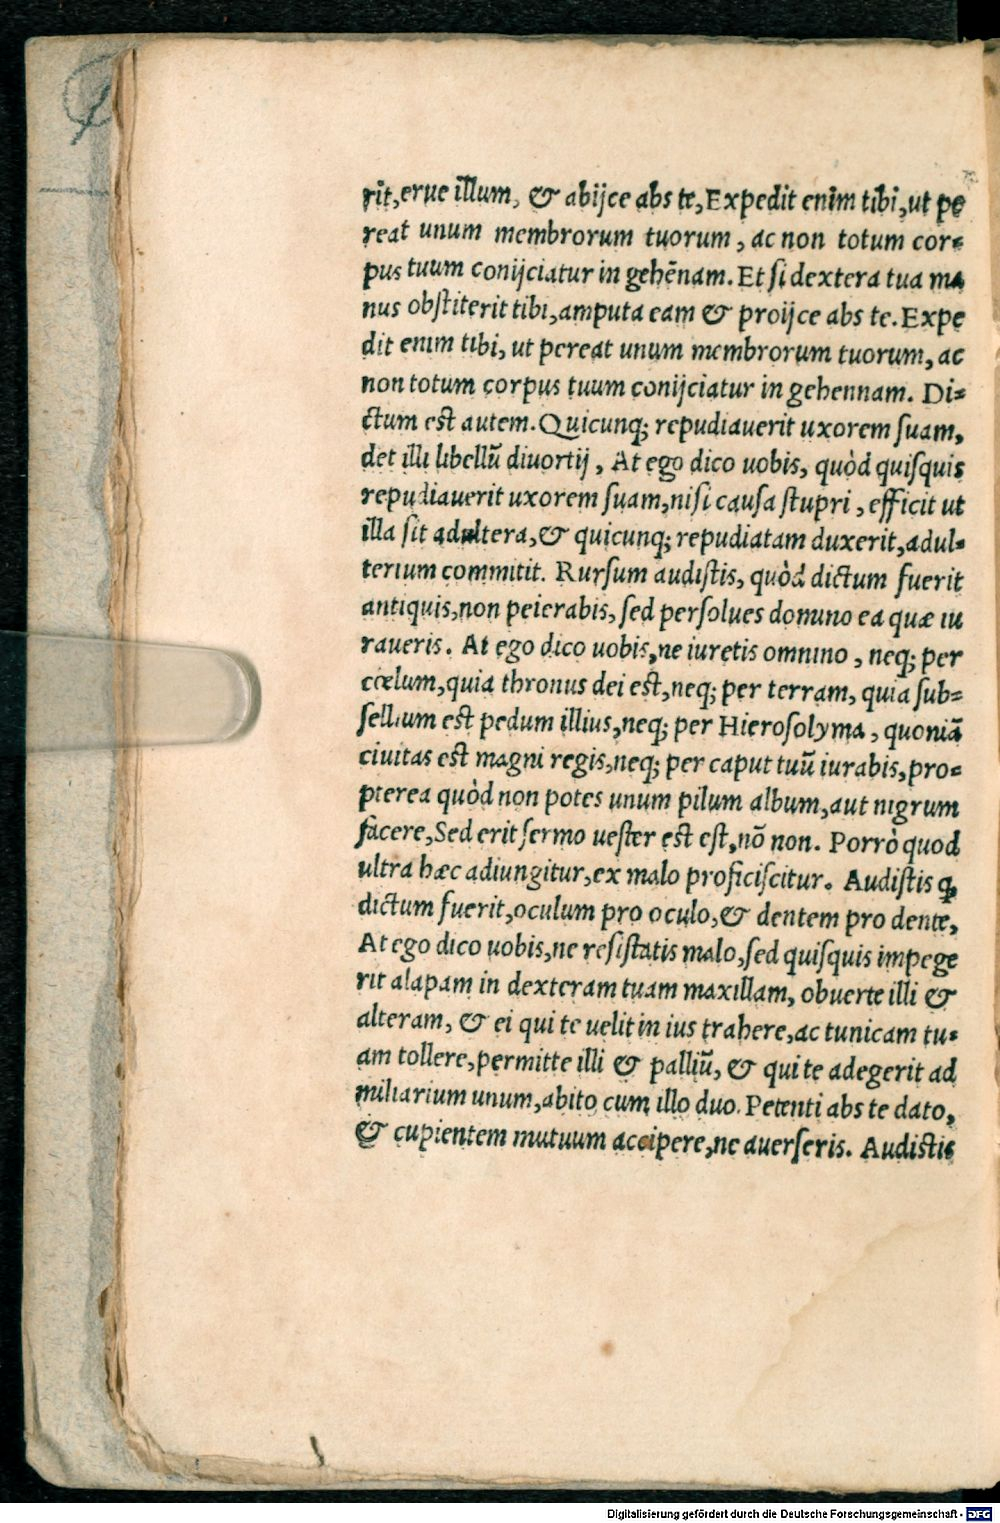 rit, erue illum, & abijce abs te, Expedit enim tibi, ut pe
reat unum membrorum tuorum, ac non totum cor⸗
pus tuum conijciatur in gehēnam. Et si dextera tua ma
nus obſtiterit tibi, amputa eam & proijce abs te. Expe
dit enim tibi, ut pereat unum membrorum tuorum, ac
non totum corpus tuum conijciatur in gehennam. Di⸗
ctum eſt autem. Quicunq; repudiauerit uxorem ſuam,
det illi libellũ diuortij, At ego dico uobis, quòd quiſquis
repudiauerit uxorem ſuam, niſi cauſa ſtupri, efficit ut
illa ſit adultera, & quicunq; repudiatam duxerit, adul⸗
terium commitit. Rurſum audiſtis, quòd dictum fuerit
antiquis, non peierabis, ſed perſolues domino ea quæ iu
raueris. At ego dico uobis, ne iuretis omnino, neq; per
cœlum, quia thronus dei eſt, neq; per terram, quia ſub⸗
ſellium eſt pedum illius, neq; per Hieroſolyma, quoniã
ciuitas eſt magni regis, neq; per caput tuũ iurabis, pro⸗
pterea quòd non potes unum pilum album, aut nigrum
facere, Sed erit ſermo ueſter eſt eſt, nõ non. Porrò quod
ultra hæc adiungitur, ex malo proficiſcitur. Audiſtis ꝙ
dictum fuerit, oculum pro oculo, & dentem pro dente,
At ego dico uobis, ne reſiſtatis malo, ſed quiſquis impege
rit alapam in dexteram tuam maxillam, obuerte illi &
alteram, & ei qui te uelit in ius trahere, ac tunicam tu⸗
am tollere, permitte illi & palliũ, & qui te adegerit ad
miliarium unum, abito cum illo duo. Petenti abs te dato,
& cupientem mutuum accipere, ne auerſeris. Audiſtis
Digitalisierung gefördert durch die Deutsche Forschungsgemeinschaft - DFG